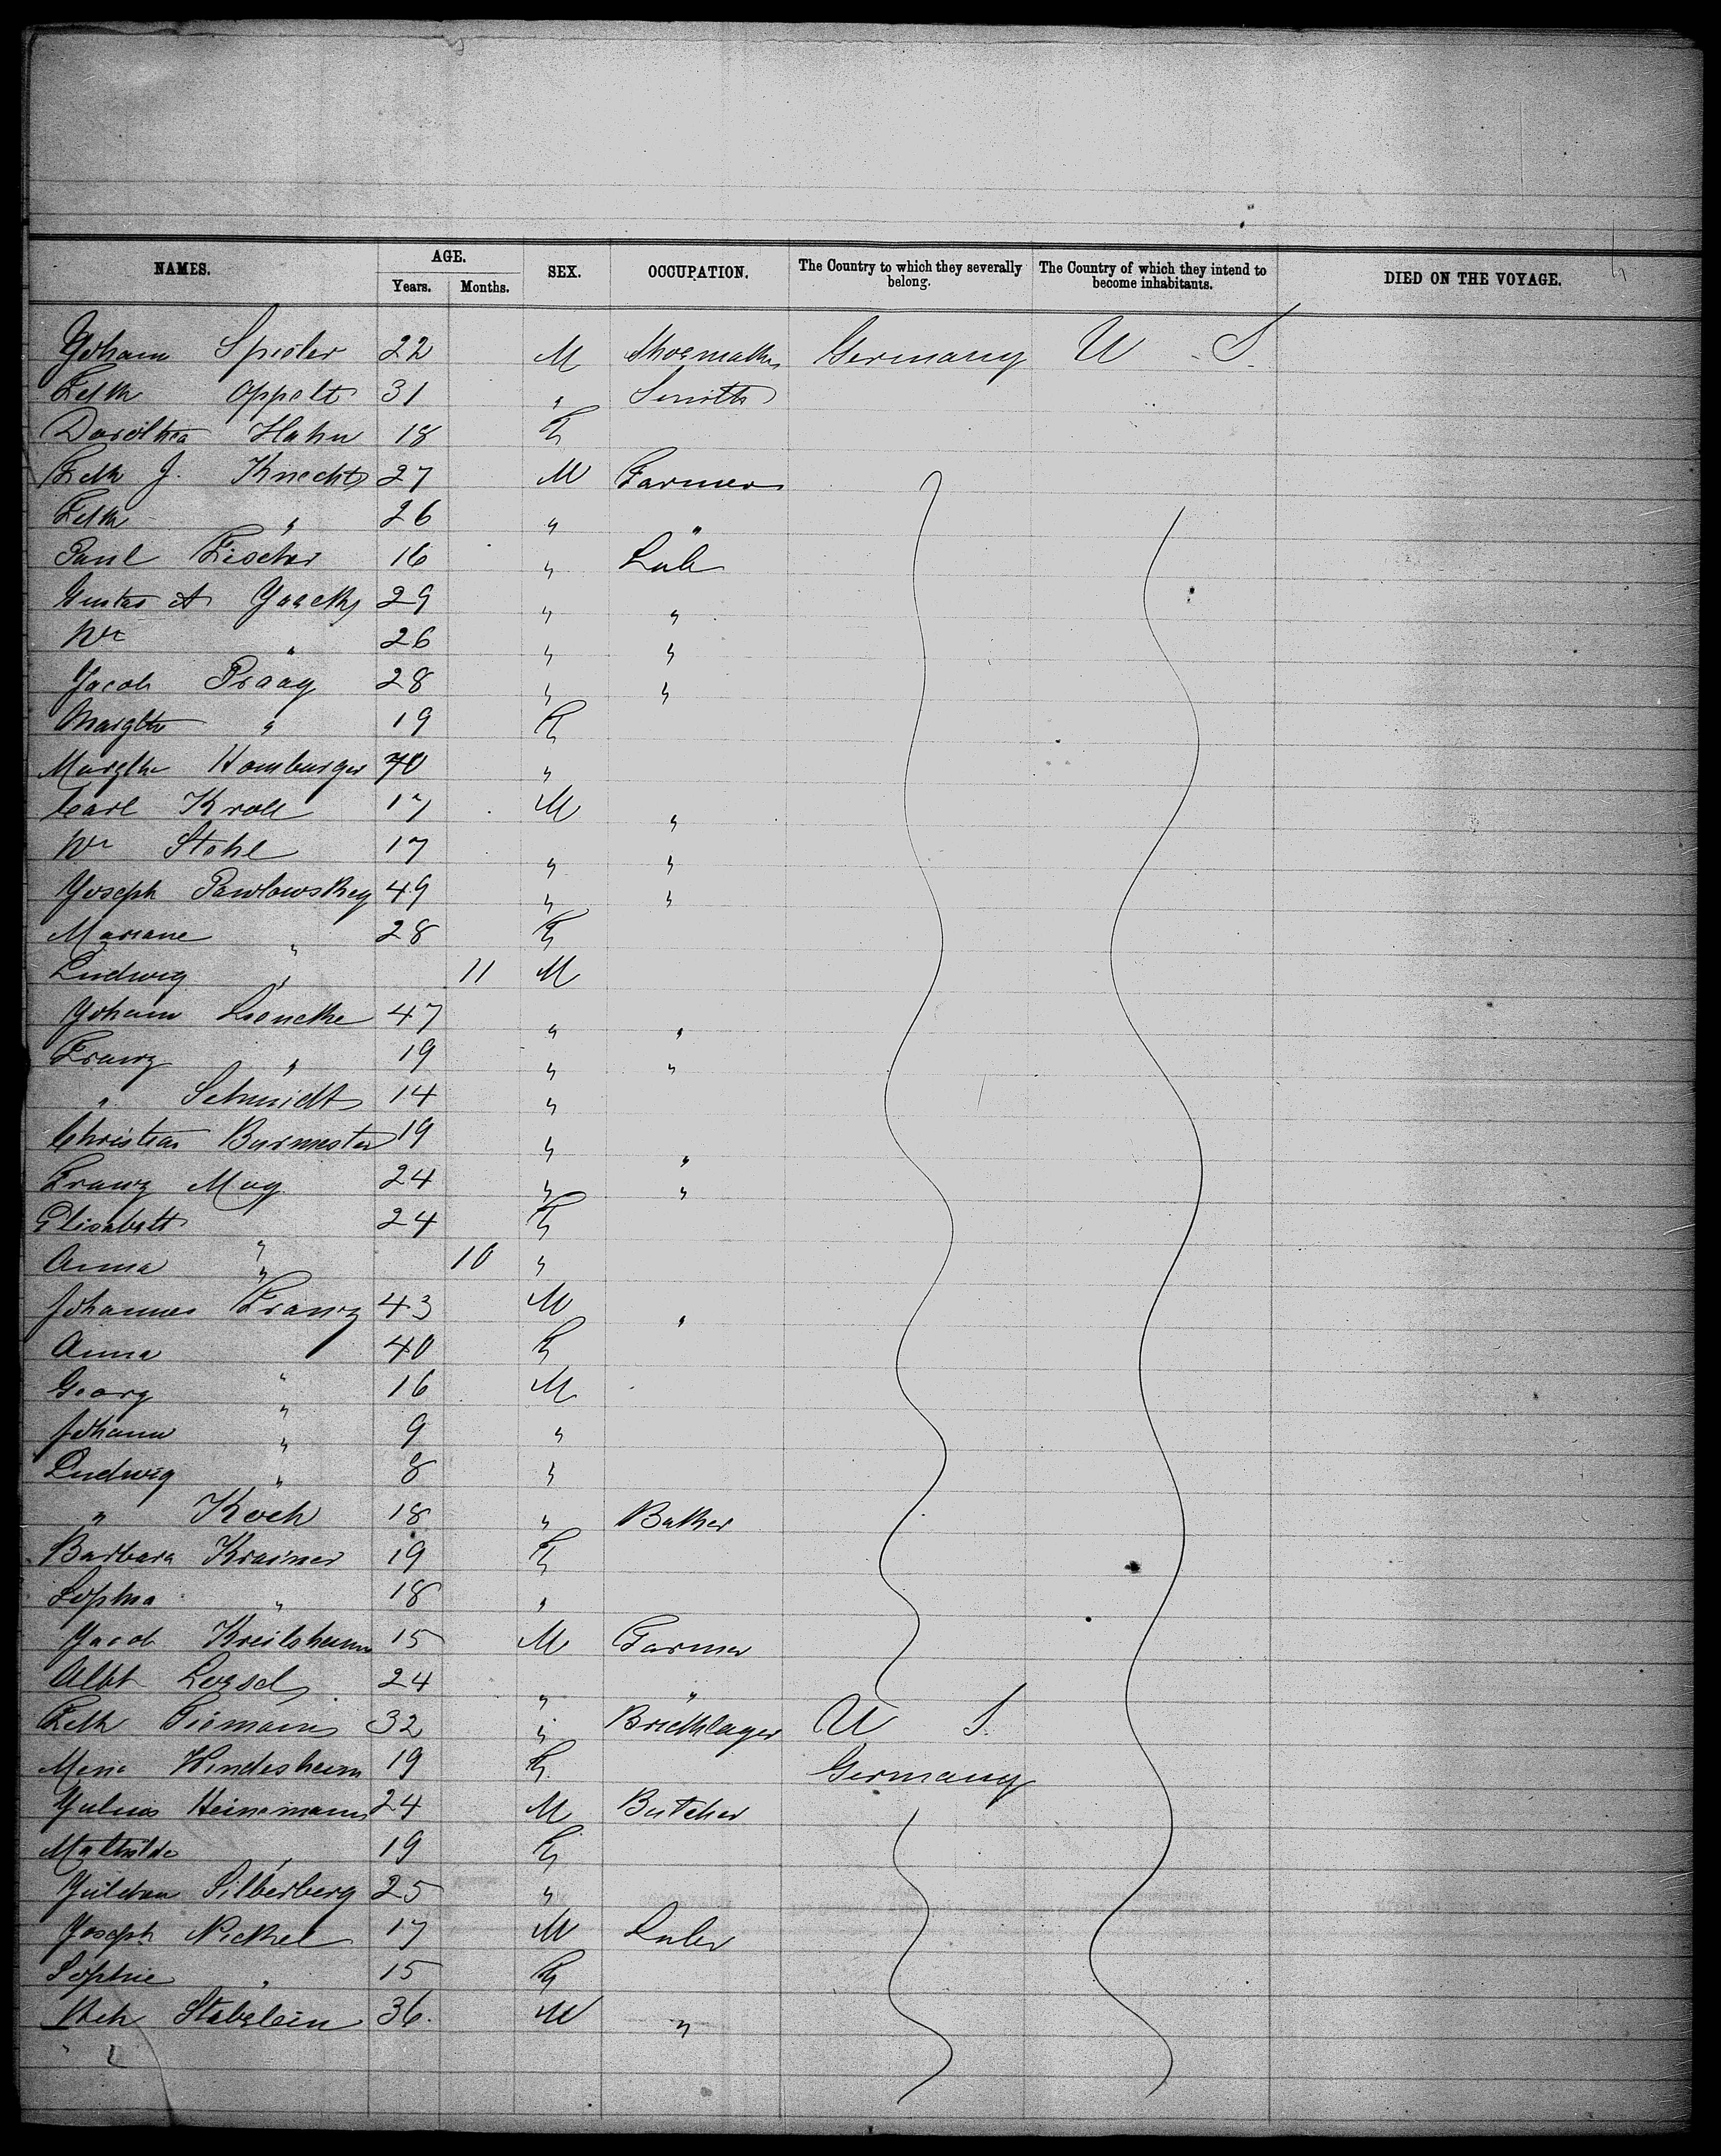 NAMES. AGE. SEX. OCCUPATION. The Country to which they severally belong. The Country of which they intend to become inhabitants. DIED ON THE VOYAGE.
Years. Months.
Johann Spieler 22 M Shoemaker Germany U S.
Appelt 31 " Smith
Dorothea Hahn 18 F
J. Knecht 27 M Farmer
" 26 " "
Paul Fischer 16 " Lab
Gustav A 29 " "
Wm " 26 " "
Jacob Praag 28 " "
Margthe " 19 F
Margthe Hamburger 70 "
Carl Kroll 17 M "
Wm Stohl 17 " "
Joseph Pawlowskey 49 " "
Mariane " 28 F
Ludwig " 11 M
Johann 47 " "
Franz " 19 " "
" Schmidt 14 "
Christian Burmester 19 " "
Franz May 24 " "
Elisabett " 24 F
Anna " 10 "
Johannes Franz 43 M "
Anna " 40 F
Georg " 16 M
Johann " 9 "
Ludwig " 8 "
" Koch 18 " Baker
Barbara Krainer 19 F
Sophia " 18 "
Jacob Kreilsheim 15 M Farmer
Albt 24 " "
32 " Bricklayer U S.
Windesheim 19 F Germany
Julius Heinemann 24 M Butcher
Mathilde " 19 F
Julchen Silberberg 25 "
Joseph Nickel 17 M Labr
Sophie " 15 F
Hch Stabelein 36. M "